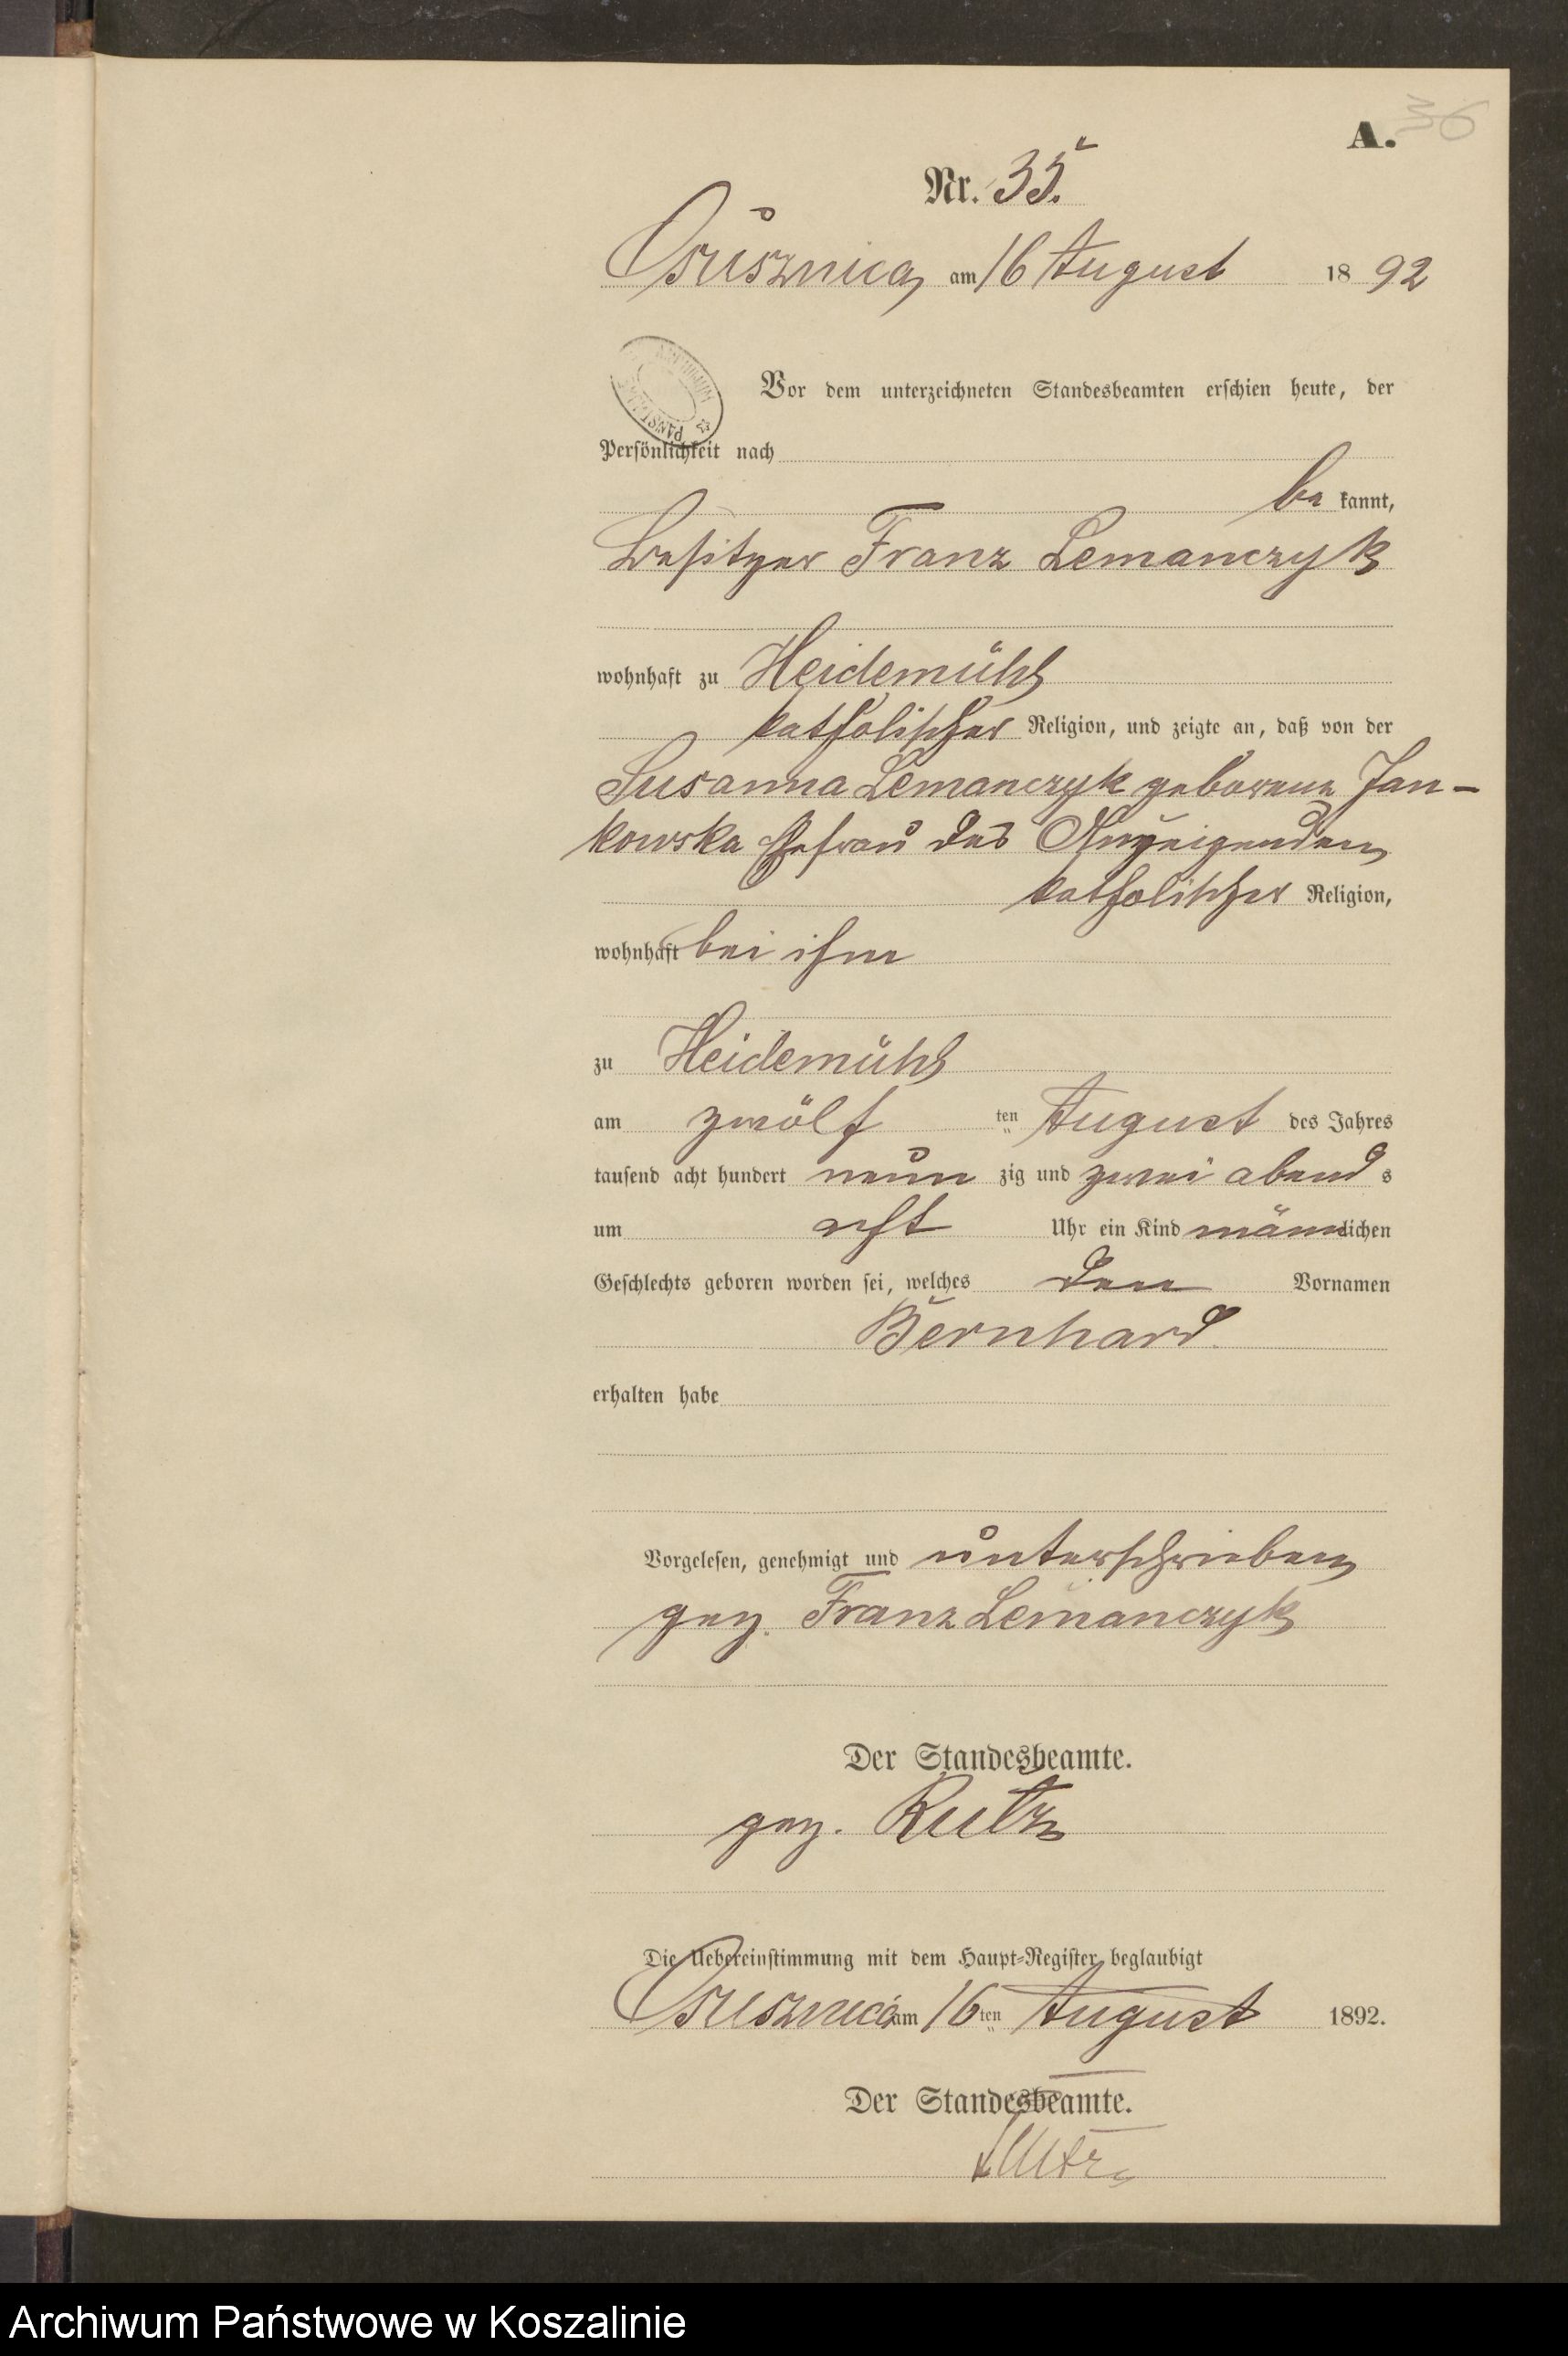 A. 36
Nr. 35.
Ossusznica, am 16 August 1892
ARCHIWUM PAŃSTWOWE
Vor dem unterzeichneten Standesbeamten erschien heute, der
Persönlichkeit nach
be kannt,
Besitzer Franz Lemanczyk
wohnhaft zu Heidemühl
katholischer Religion, und zeigte an, daß von der
Susanna Lemanczyk geborene Jan-
kowska Ehefrau des Anzeigenden
katholischer Religion,
wohnhaft bei ihm
zu Heidemühl
am zwölf ten August des Jahres
tausend acht hundert neun zig und zwei abend s
um acht Uhr ein Kind männlichen
Geschlechts geboren worden sei, welches den Vornamen
Bernhard.
erhalten habe
Vorgelesen, genehmigt und unterschrieben
gez. Franz Lemanczyk
Der Standesbeamte.
gez. Rutz
Die Uebereinstimmung mit dem Haupt-Register beglaubigt
Ossusznica am 16 ten August 1892.
Der Standesbeamte.
Rutz
Archiwum Państwowe w Koszalinie